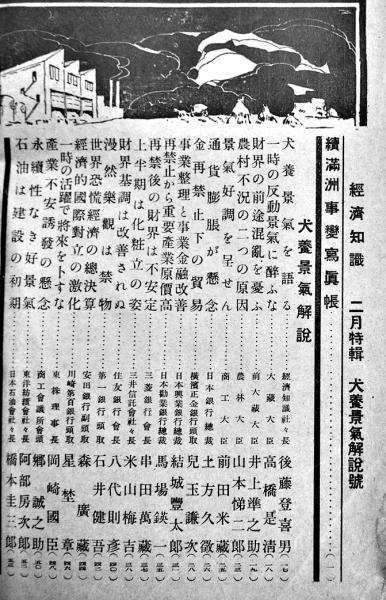 經濟知識 二月特輯 犬養景氣解說號
續滿洲事變寫眞帳……(一)
犬養景氣解說
犬養景氣を語る…… 經濟知識社々長 後藤登喜男
一時の反動景氣に醉ふな…… 大藏大臣 高橋是淸
財界の前途混亂を憂ふ…… 前大藏大臣 井上準之助
農村不況の二つの原因…… 農林大臣 山本悌二郎
景氣好調を呈せん…… 商工大臣 前田米藏
通貨膨脹が懸念…… 日本銀行總裁 土方久徵
金再禁止下の貿易…… 橫濱正金銀行頭取 兒玉謙次
事業整理と事業金融改善…… 日本興業銀行總裁 結城豐太郎
再禁止から重要產業原價高…… 日本勸業銀行總裁 馬場鍈一
再禁後の財界は不安定…… 三菱銀行會長 串田萬藏
上半期は化粧立の姿…… 三井信託會社々長 米山梅吉
財界基調は改善されぬ…… 住友銀行會長 八代則彥
漫然樂觀は禁物…… 第一銀行頭取 石井健吾
世界恐慌經濟の總決算…… 安田銀行副頭取 森廣藏
經濟的國際對立の激化…… 川崎第百銀行頭取 星埜章
一時の活躍で將來を卜すな…… 東株理事長 岡崎國臣
產業不安誘發の懸念…… 商工會議所會頭 鄕誠之助
永續性なき好景氣…… 東洋紡績會社々長 阿部房次郎
石油は建設の初期…… 日本石油會社々長 橋本圭三郎